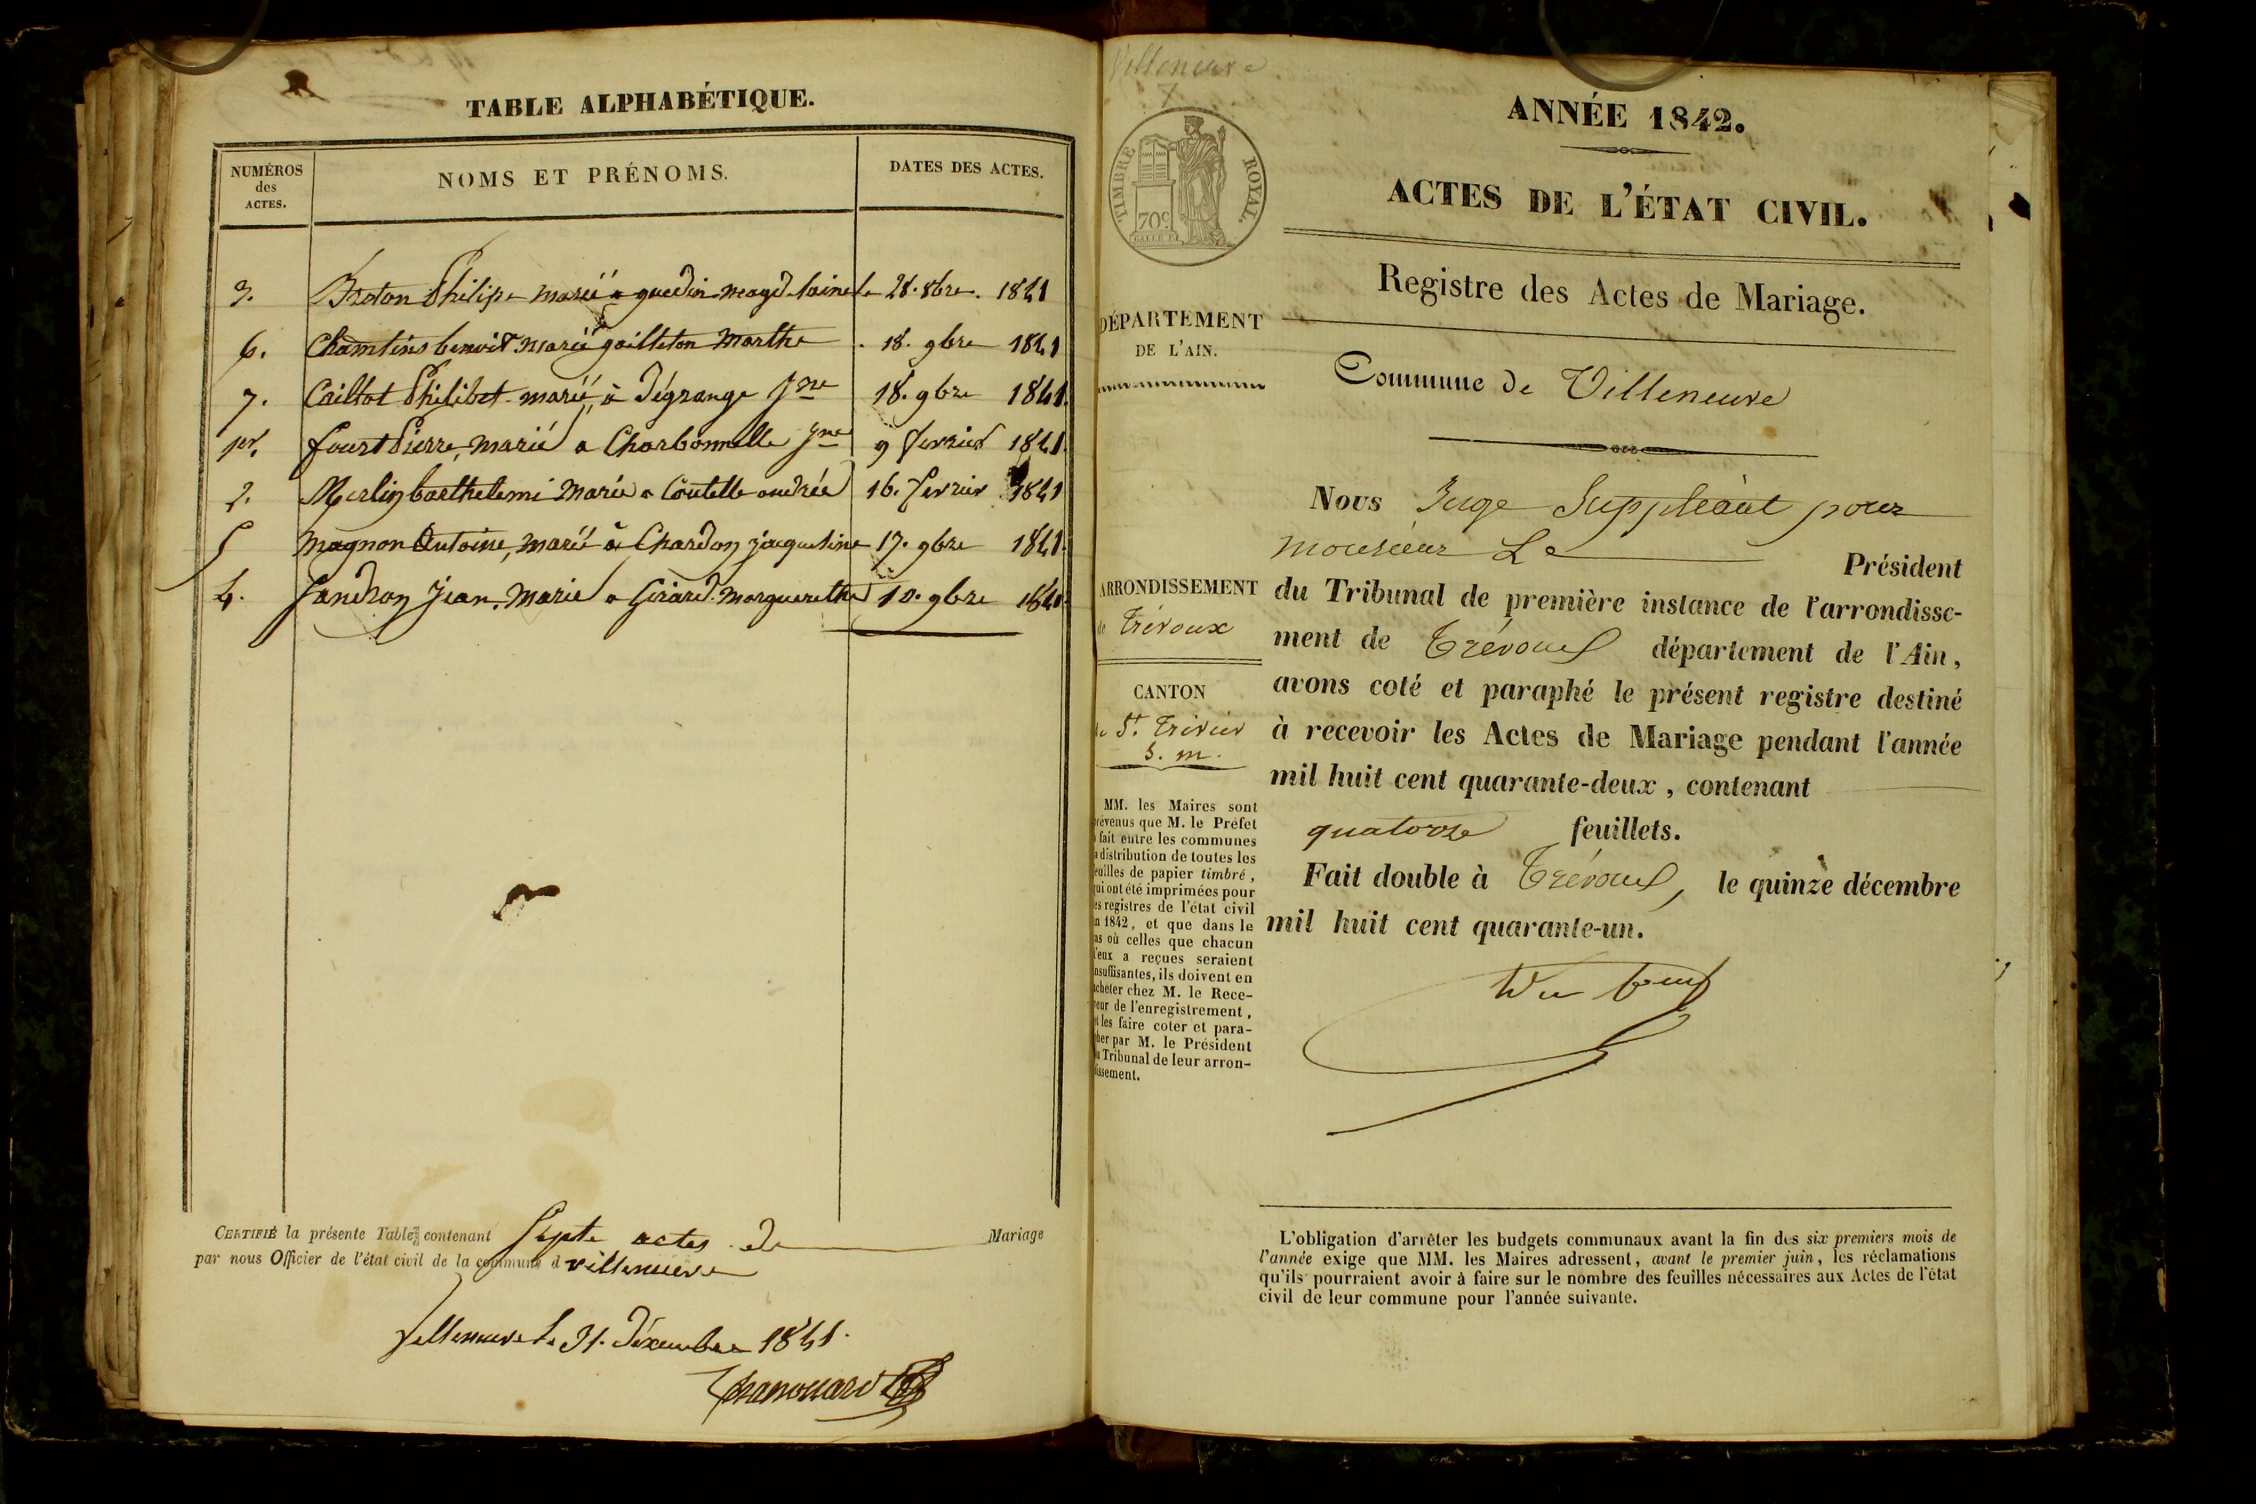 TABLE ALPHABÉTIQUE.
NUMÉROS
des
ACTES.
NOMS ET PRÉNOMS.
DATES DES ACTES.
3. Philipe marié a magdelaine le 28. 8bre. 1841
6. benoit marié gailleton Marthe 18. 9bre 1841
7. Caillot Philibet marié à Dégrange Jne 18. 9bre 1841
1er. fourt Pierre, marié a Charbonnelle Jne 9 fevrier 1841
2. Merlin barthelemi Marié a Coutelle andrée 16. fevrier 1841
5 Magnon Antoine, marié à Chardon jaqueline 17. 9bre 1841
4. Jandron Jean. Marié a Girard. Marguerethe 10. 9bre 1841
CERTIFIÉ la présente Table contenant Septe actes de Mariage
par nous Officier de l'état civil de la commune d villeneuve
Villeneuve le 31. Décembre 1841.
Villeneuve
TIMBRE ROYAL.
70c
ANNÉE 1842.
ACTES DE L'ÉTAT CIVIL.
Registre des Actes de Mariage.
DÉPARTEMENT
DE L'AIN.
Commune de Villeneuve
Nous Juge Suppléant pour
monsieur Le Président
du Tribunal de première instance de l'arrondisse-
ment de Trévoux département de l'Ain,
avons coté et paraphé le présent registre destiné
à recevoir les Actes de Mariage pendant l'année
mil huit cent quarante-deux, contenant
quatorze feuillets.
Fait double à Trévoux, le quinze décembre
mil huit cent quarante-un.
ARRONDISSEMENT
de Trévoux
CANTON
de St. Trivier
S. m.
MM. les Maires sont
prévenus que M. le Préfet
a fait entre les communes
la distribution de toutes les
feuilles de papier timbré,
qui ont été imprimées pour
les registres de l'état civil
en 1842, et que dans le
cas où celles que chacun
d'eux a reçues seraient
insuffisantes, ils doivent en
acheter chez M. le Rece-
veur de l'enregistrement,
et les faire coter et para-
pher par M. le Président
du Tribunal de leur arron-
dissement.
L'obligation d'arrêter les budgets communaux avant la fin des six premiers mois de
l'année exige que MM. les Maires adressent, avant le premier juin, les réclamations
qu'ils pourraient avoir à faire sur le nombre des feuilles nécessaires aux Actes de l'état
civil de leur commune pour l'année suivante.